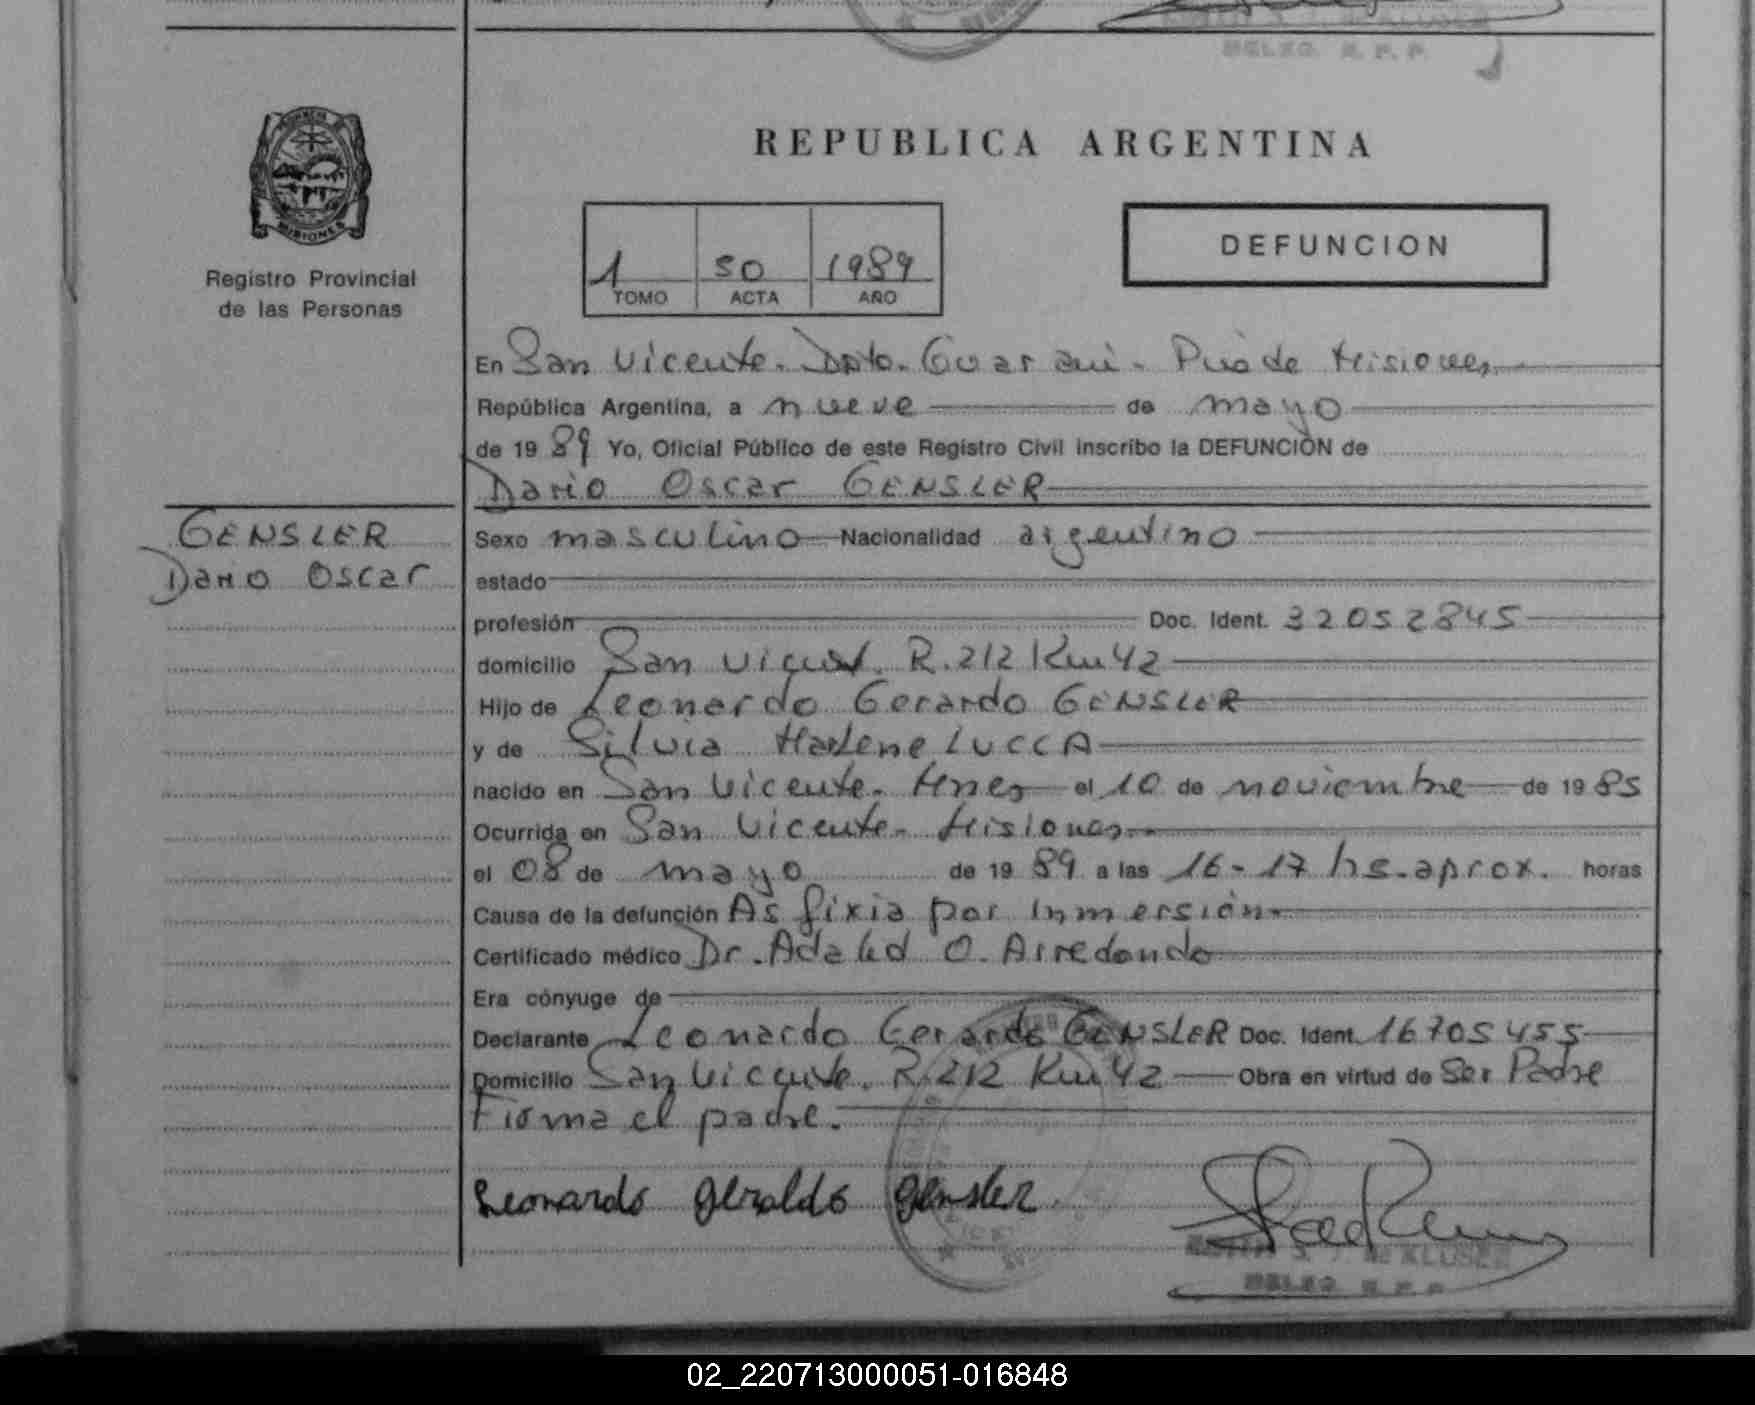 DELEG. R. P. P.
PROVINCIA DE
MISIONES
Registro Provincial
de las Personas
REPUBLICA ARGENTINA
1 50 1989
TOMO ACTA AÑO
DEFUNCION
En San Vicente. Dpto. Guaraní. Pcia de Misiones
República Argentina, a nueve de mayo
de 1989 Yo, Oficial Público de este Registro Civil inscribo la DEFUNCIÓN de
Dario Oscar GENSLER
GENSLER
Dario Oscar
Sexo masculino Nacionalidad argentino
estado
profesión Doc. Ident. 32052845
domicilio San Vicent. R.212 Km 42
Hijo de Leonardo Gerardo GENSLER
y de Silvia Marlene LUCCA
nacido en San Vicente. Mnes el 10 de noviembre de 1985
Ocurrida en San Vicente. Misiones.
el 08 de mayo de 1989 a las 16-17 hs. aprox. horas
Causa de la defunción Asfixia por inmersión.
Certificado médico Dr. O. Arredondo
Era cónyuge de
Declarante Leonardo Gerardo GENSLER Doc. Ident. 16705455
Domicilio San Vicente. R.212 Km 42 Obra en virtud de Ser Padre
Firma el padre.
Leonardo Geraldo Gensler
KLUSER
DELEG. R. P. P.
02_220713000051-016848